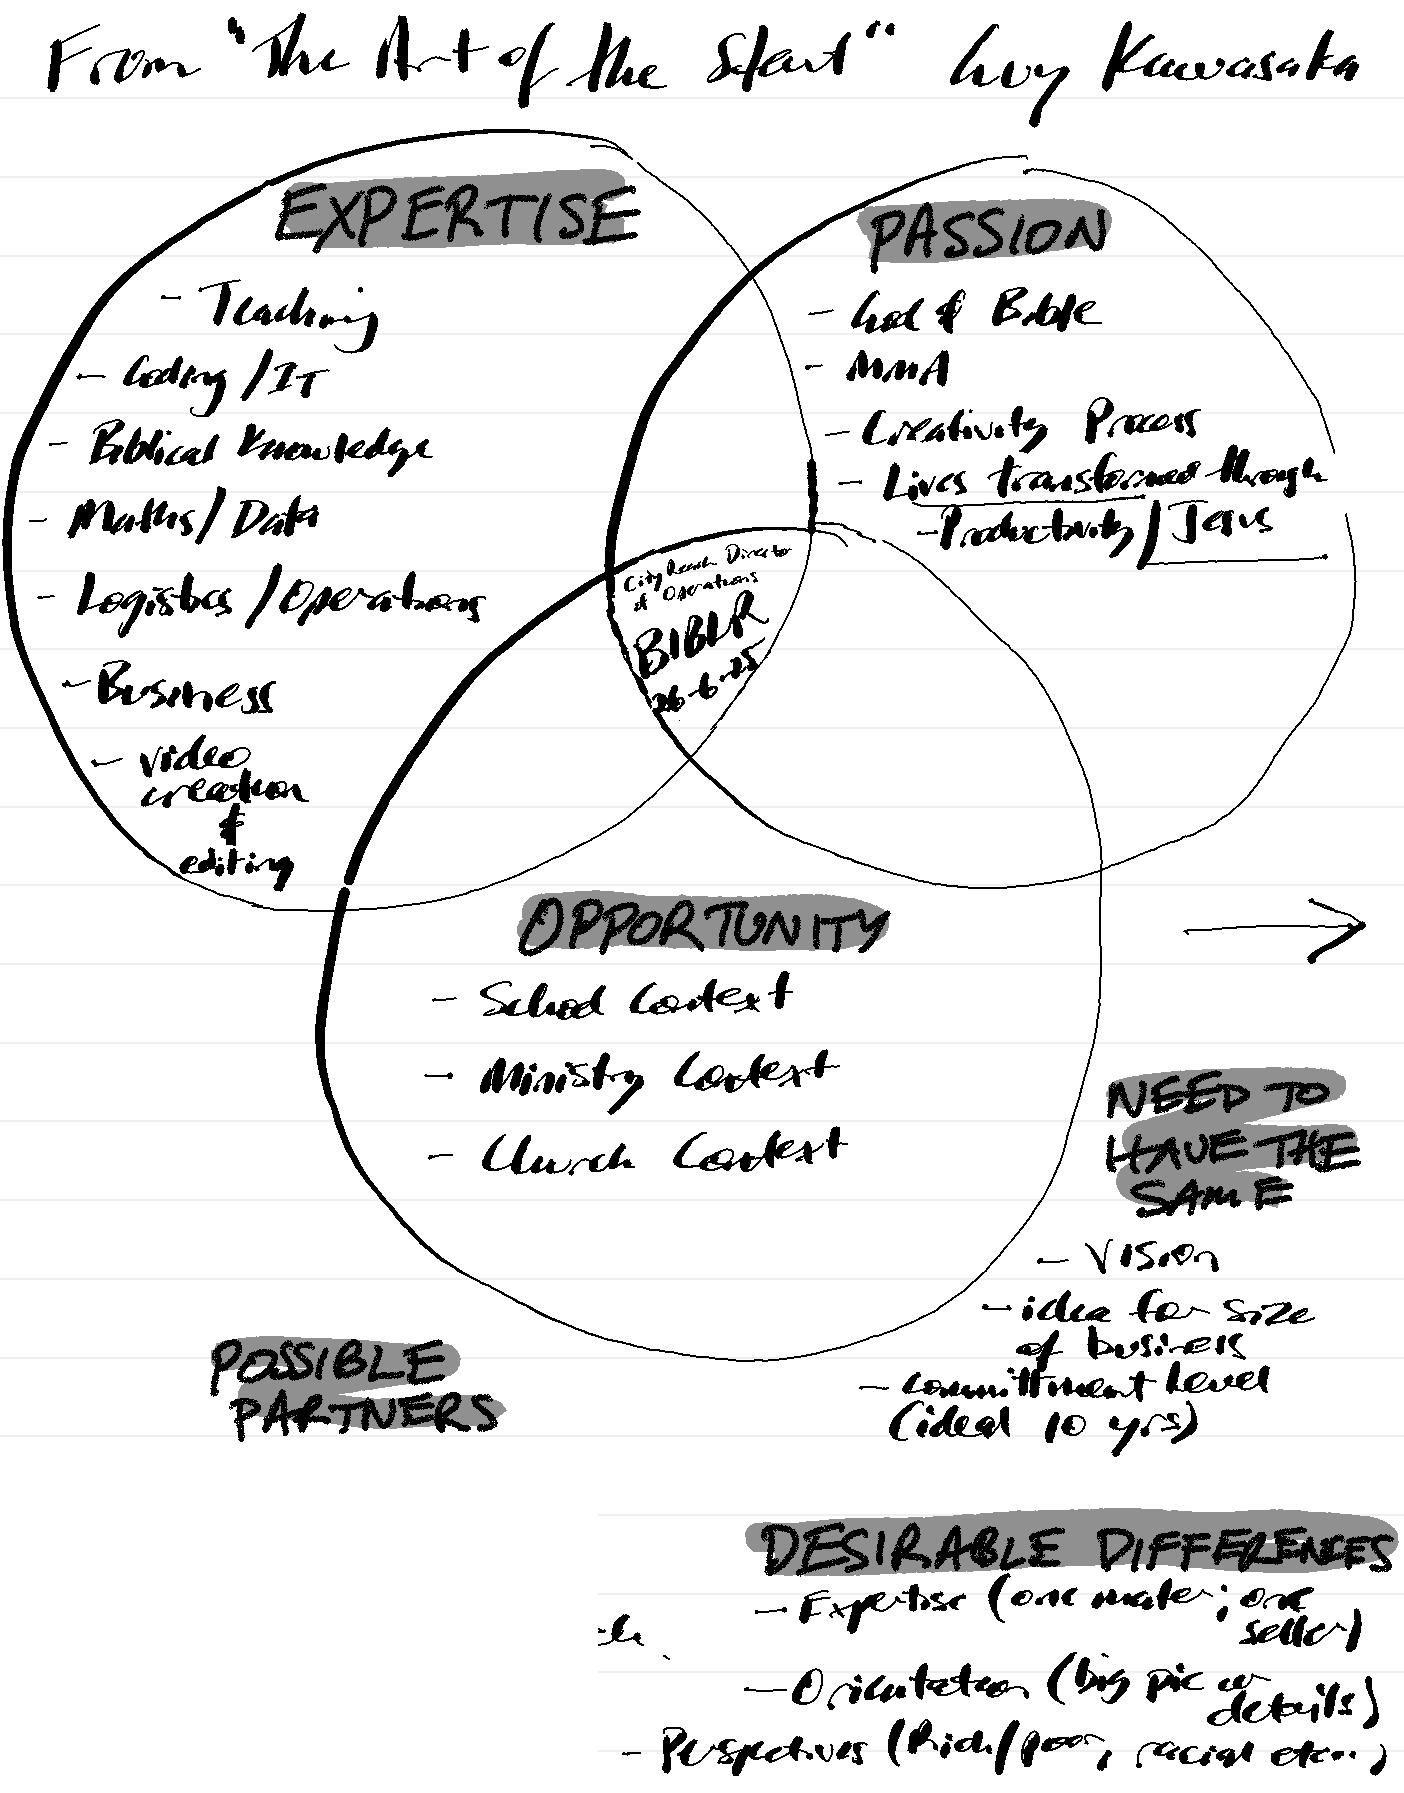 From "The Art of the Start" Guy Kawasaka
EXPERTISE
- Teaching
- Coding/IT
- Biblical Knowledge
- Maths/Data
- Logistics/Operations
- Business
- video
creation
&
editing
PASSION
- God & Bible
- MMA
- Creativity Process
- Lives transformed through
- Productivity/Jesus
City Reach Director
of Operations
BIBLR
26-6-25
OPPORTUNITY
- School Context
- Ministry Context
- Church Context
NEED TO
HAVE THE
SAME
- Vision
- idea for size
of business
- committment level
(ideal 10 yrs)
POSSIBLE
PARTNERS
DESIRABLE DIFFERENCES
- Expertise (one maker; one
seller)
- Orientation (big pic or
details)
- Perspectives (Rich/poor, racial etc...)